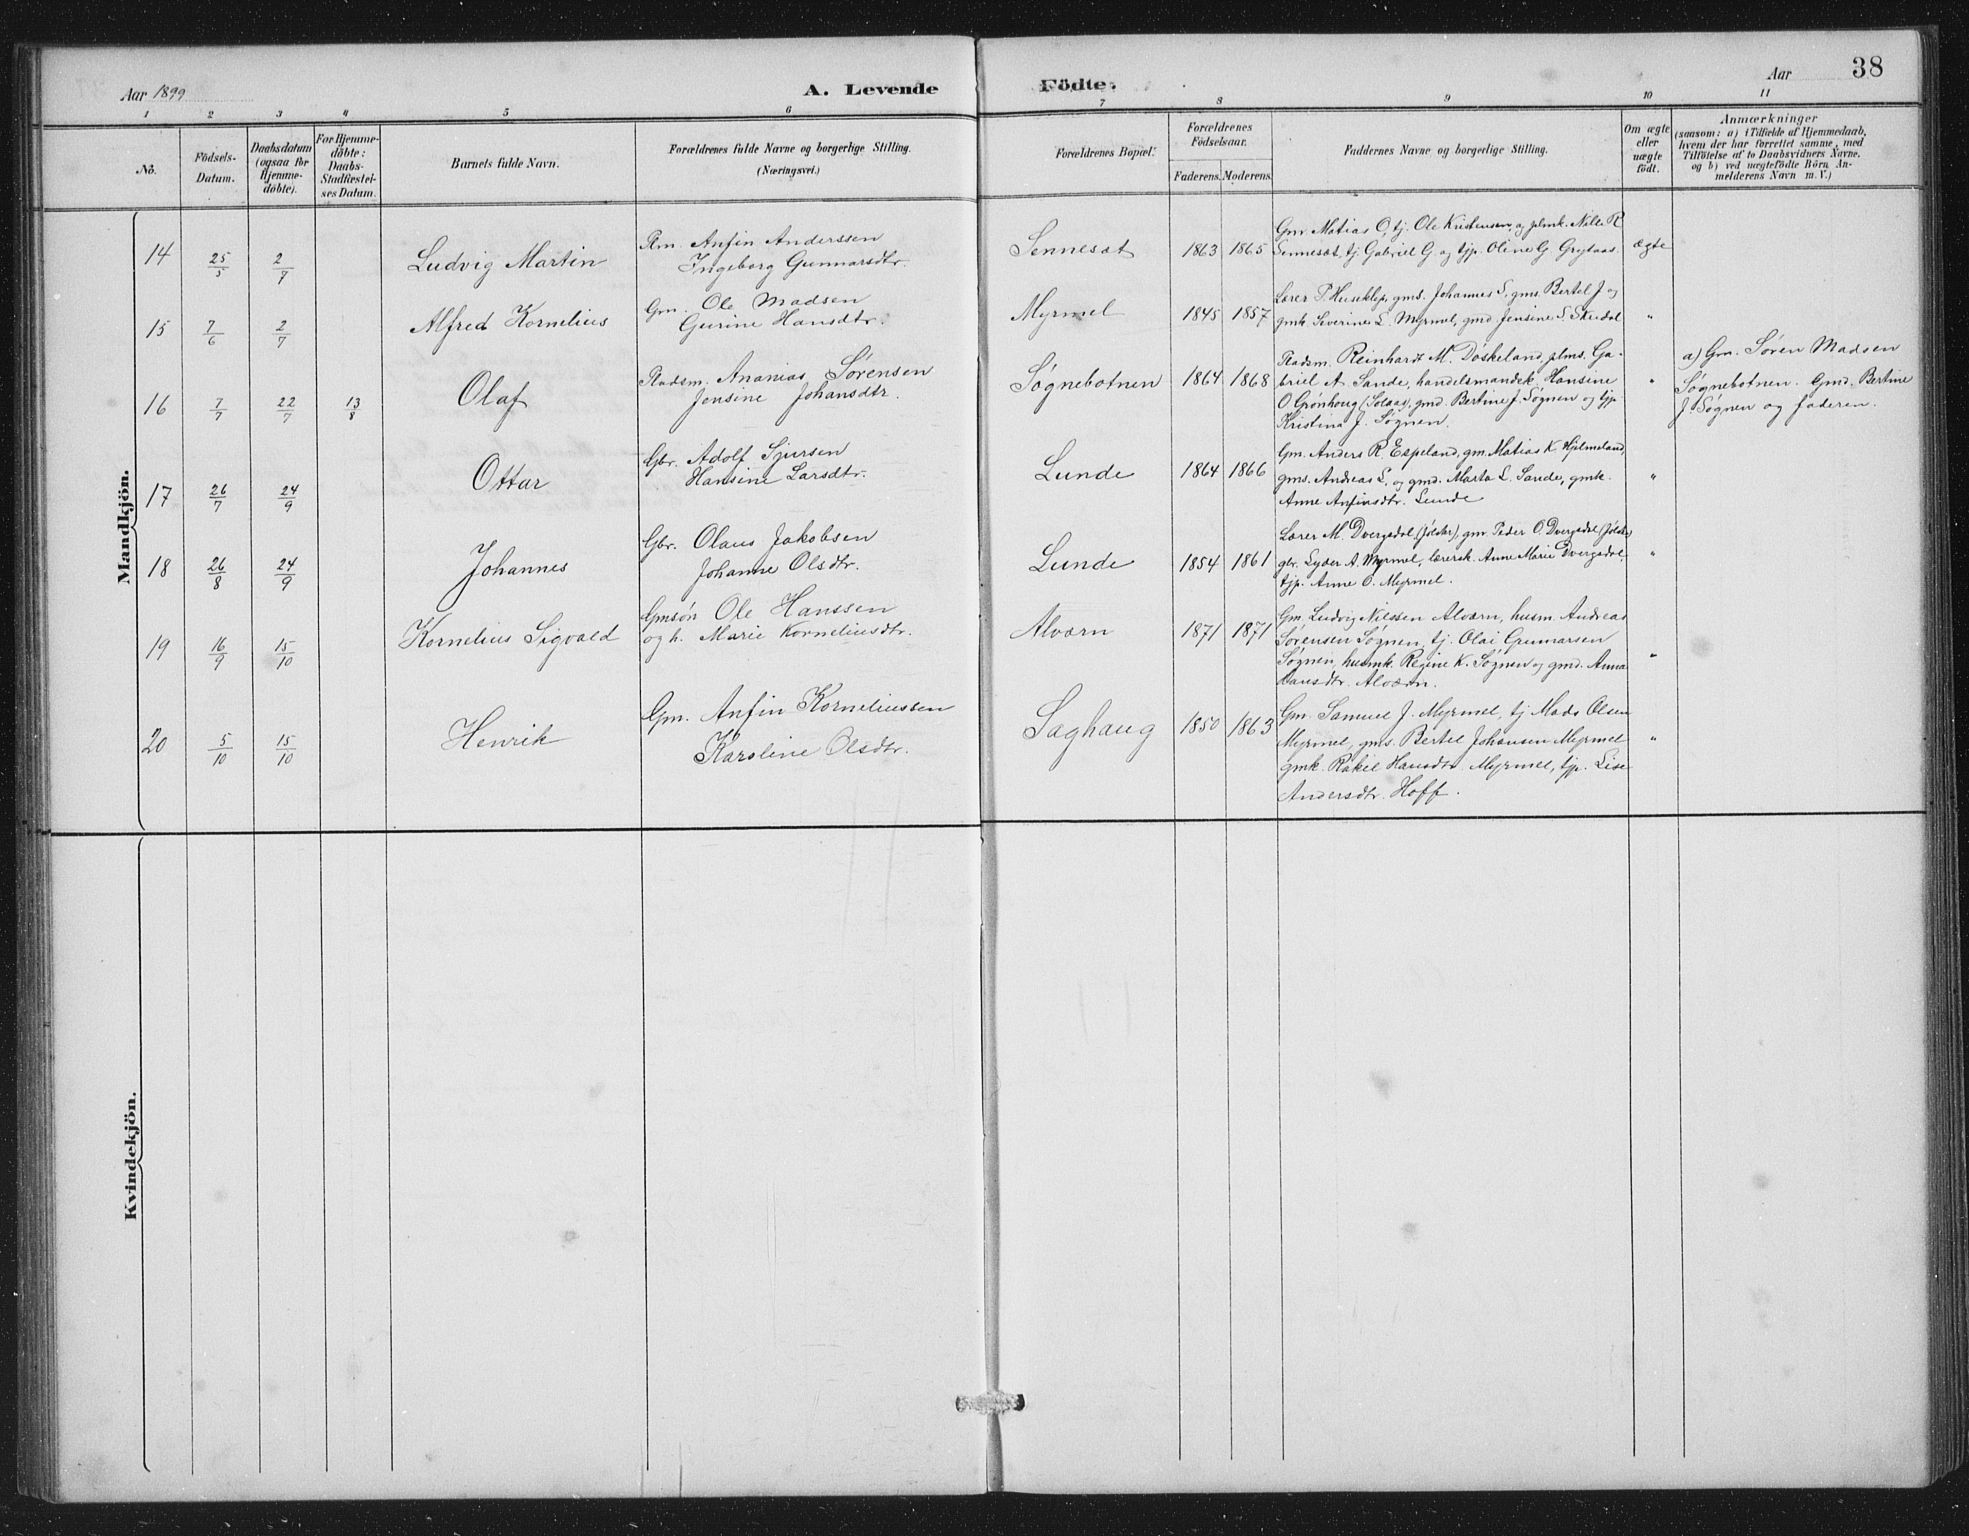 Aar 1899
A. Levende
Födte.
Aar
38
1 2 3 4 5 6 7 8 9 10 11
No.
Födsels-
Datum.
Daabsdatum
(ogsaa for
Hjemme-
döbte).
For Hjemme-
döbte:
Daabs-
Stadfæstel-
ses Datum.
Barnets fulde Navn.
Forældrenes fulde Navne og borgerlige Stilling.
(Næringsvei.)
Forældrenes Bopæl.
Forældrenes
Födselsaar.
Faderens. Moderens.
Faddernes Navne og borgerlige Stilling.
Om ægte
eller
uægte
födt.
Anmærkninger
(saasom: a) i Tilfælde af Hjemmedaab,
hvem der har forrettet samme, med
Tilföielse af to Daabsvidners Navne,
og b) ved uægtefödte Börn An-
melderens Navn m. V.)
Mandkjön.
14 25/5 2/7 Ludvig Martin
Plm. Anfin Anderssen
Ingeborg Gunnarsdtr.
Sennesæt 1863 1865
Gm Matias O, tj. Ole Kristensen, og plmk. Nille R
Sennesæt, tj. Gabriel G. og tjp. Oline G. Grytaas
ægte
15 7/6 2/7 Alfred Kornelius
Gm. Ole Madsen
Gurine Hansdtr.
Myrmel 1845 1857
Lærer P. Huseklep, gms. Johannes S, gms. Bertel J og
gmk. Severine L. Myrmel, gmd Jensine S. Skudal
"
16 7/7 22/7 13/8 Olaf
Pladsm. Ananias Sørensen
Jensine Johansdtr.
Søgnebotnen 1864 1868
Pladsm. Reinhardt M. Døskeland, plms. Ga-
briel A. Sande, handelsmandsk. Hansine
O. Grønhoug (Solaas), gmd. Bertine J. Søgnen og tjp.
Kristina J. Søgnen.
"
a) Gm. Søren Madsen
Søgnebotnen. Gmd. Bertine
J. Søgnen og faderen.
17 26/7 24/9 Ottar
Gbr. Adolf Sjursen
Hansine Larsdtr.
Lunde 1864 1866
Gm. Anders R. Espeland, gm. Matias K. Hjelmeland,
gms. Andreas L, og gmd. Marta L. Sande, gmk.
Anne Anfinsdtr. Lunde
"
18 26/8 24/9 Johannes
Gbr. Olaus Jakobsen
Johanne Olsdtr.
Lunde 1854 1861
Lærer M. Dvergsdal (Jølster), gm Peder O. Dvergsdal (Jølster)
gbr. Lyder A. Myrmel, lærersk. Anne Marie Dvergsdal,
tjp. Anne O. Myrmel.
"
19 16/9 15/10 Kornelius Sigvald
Gmsøn Ole Hanssen
og h. Marie Korneliusdtr.
Alværn 1871 1871
Gm. Ludvig Nilssen Alværn, husm. Andreas
Sørensen Søgnen, tj. Olai Gunnarsen
Søgnen, husmk. Regine K. Søgnen og gmd. Anna
Hansdtr. Alværn.
"
20 5/10 15/10 Henrik
Gm. Anfin Korneliussen
Karoline Olsdtr.
Saghaug 1850 1863
Gm. Samuel J. Myrmel, tj Mads Olsen
Myrmel, gms. Bertel Johansen Myrmel
gmk. Rakel Hansdtr. Myrmel, tjp. Lise
Andersdtr. Hoff.
"
Kvindekjön.